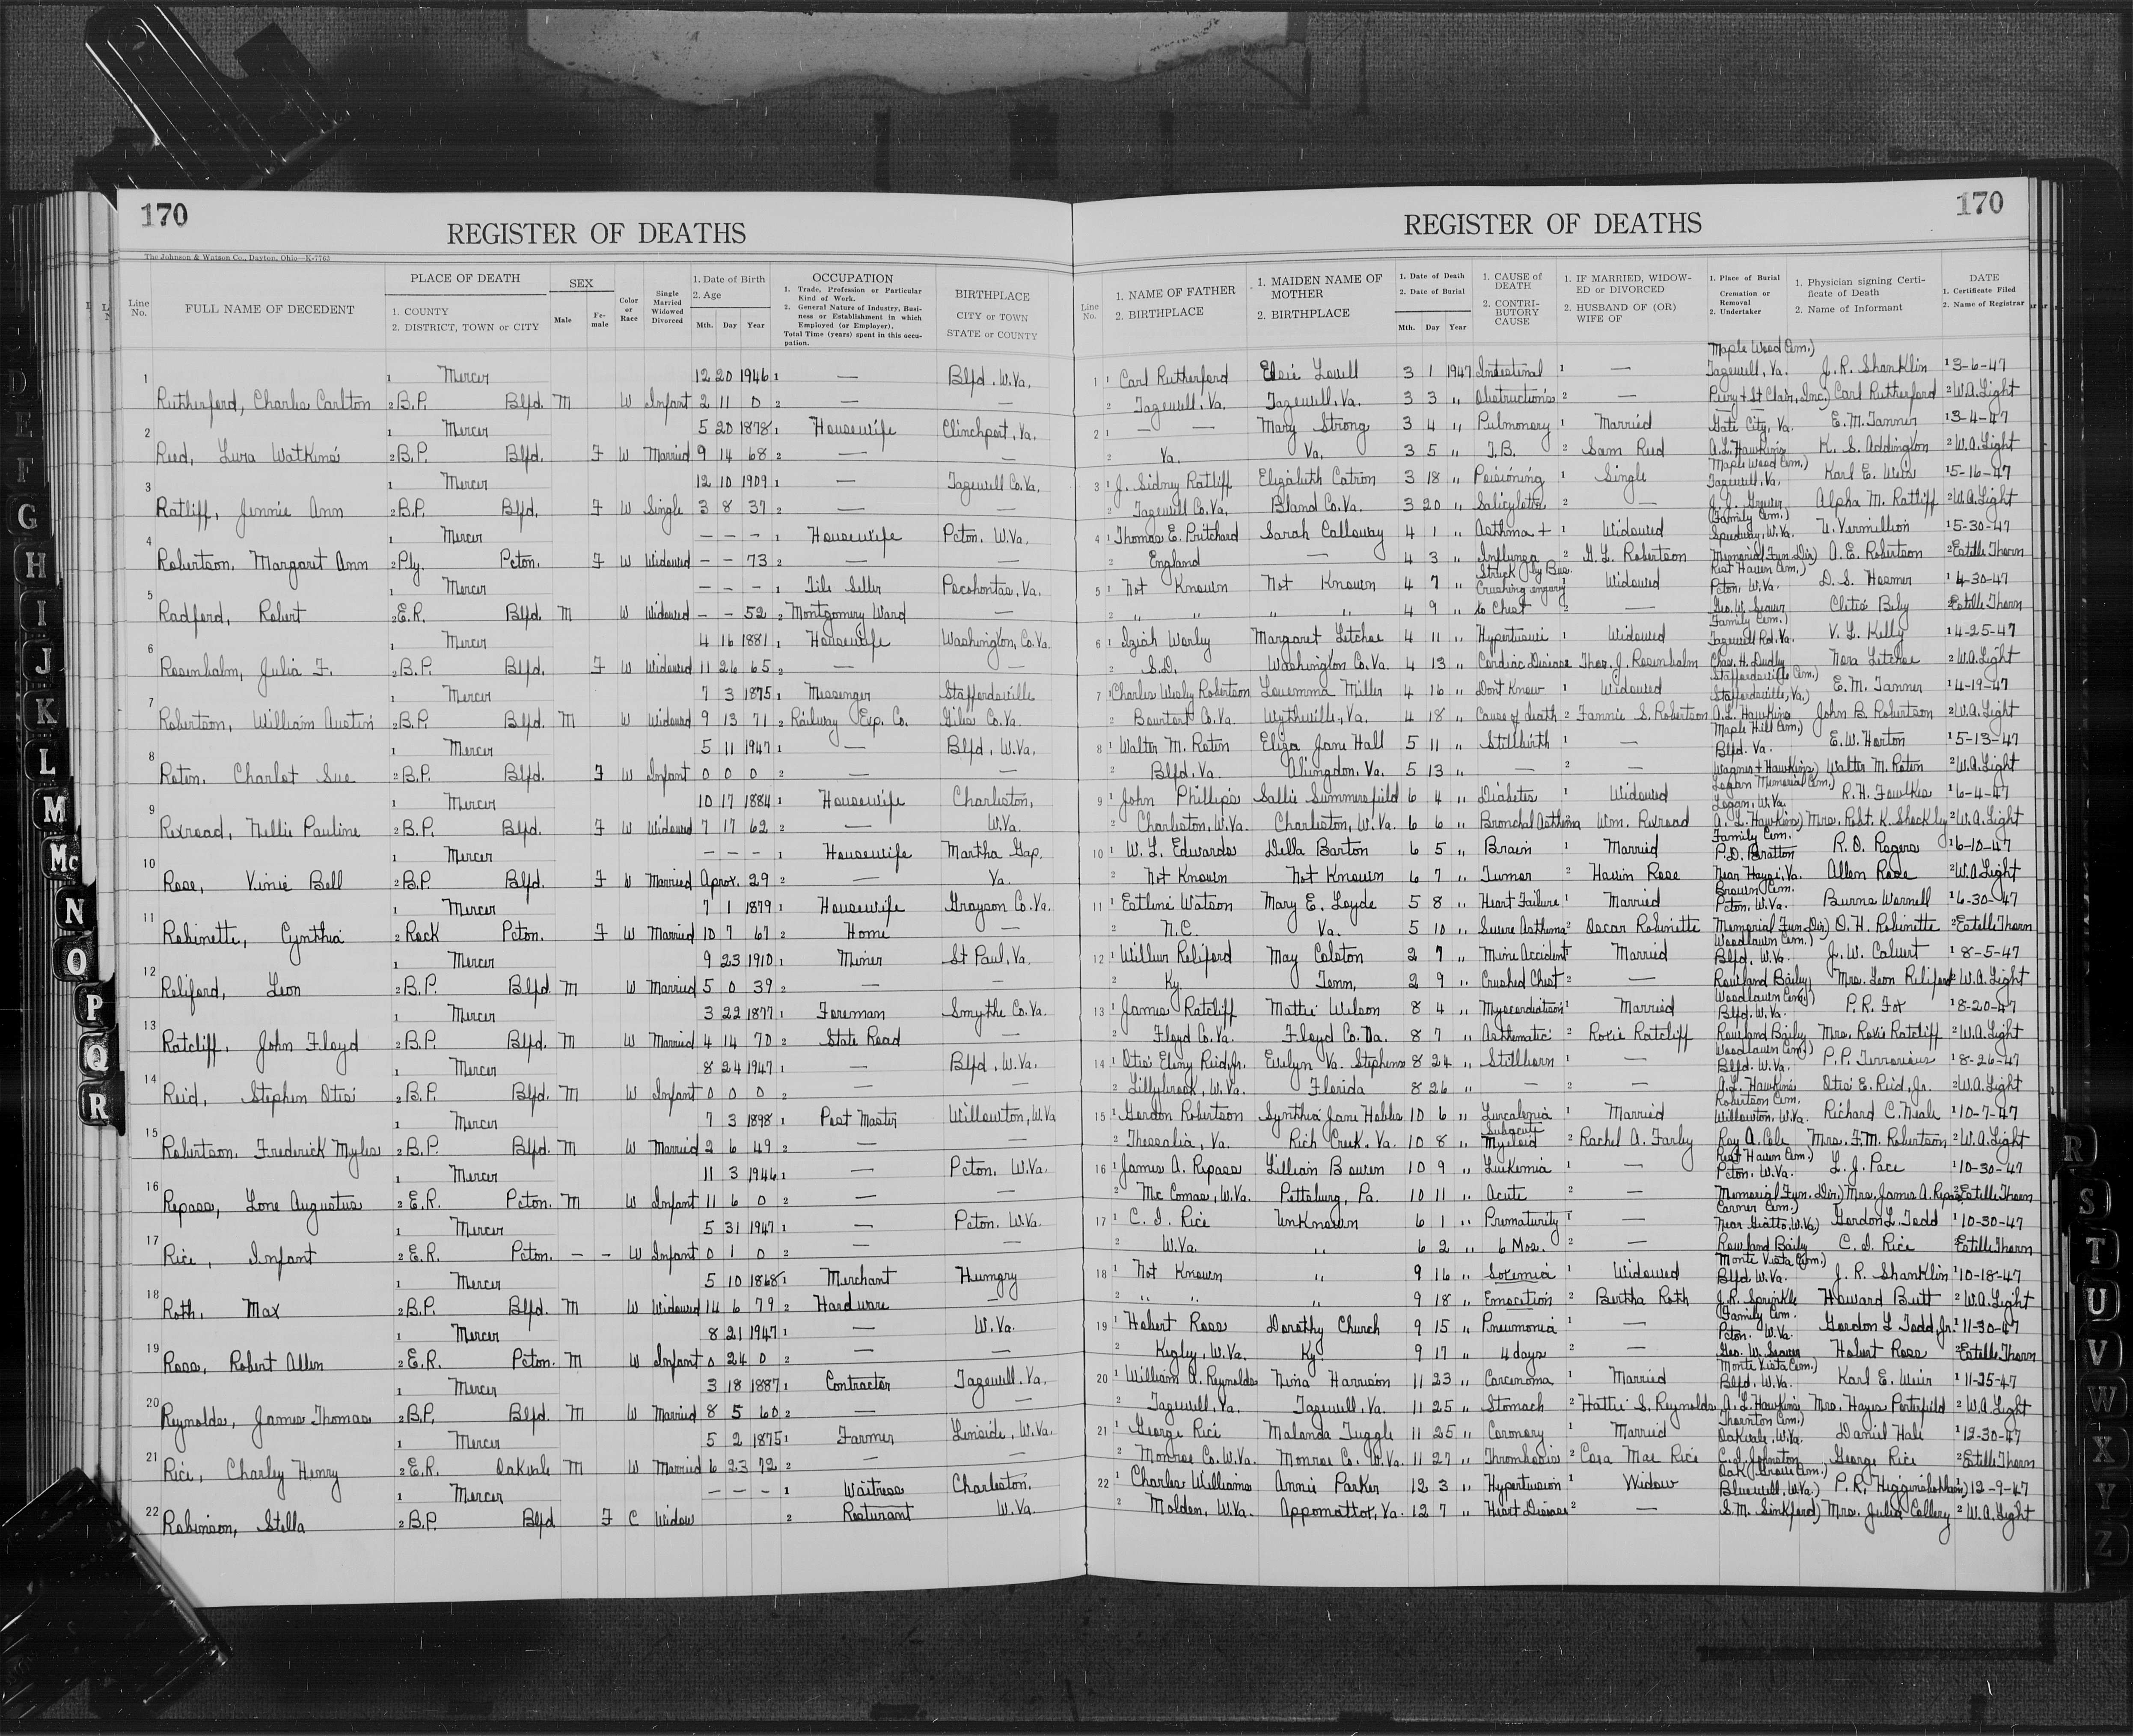 170
REGISTER OF DEATHS
The Johnson & Watson Co., Dayton, Ohio—K-7763
Line No. FULL NAME OF DECEDENT PLACE OF DEATH 1. COUNTY 2. DISTRICT, TOWN or CITY SEX Male Female Color or Race Single Married Widowed Divorced 1. Date of Birth 2. Age Mth. Day Year OCCUPATION 1. Trade, Profession or Particular Kind of Work. 2. General Nature of Industry, Business or Establishment in which Employed (or Employer). Total Time (years) spent in this occupation. BIRTHPLACE CITY or TOWN STATE or COUNTY
1 1 Mercer 12 20 1946 1 — Blfd. W.Va.
Rutherford, Charles Carlton 2 B.P. Blfd. M W Infant 2 11 0 2 — —
2 1 Mercer 5 20 1878 1 Housewife Clinchport, Va.
Reed, Lura Watkins 2 B.P. Blfd. F W Married 9 14 68 2 — —
3 1 Mercer 12 10 1909 1 — Tazewell Co. Va.
Ratliff, Jennie Ann 2 B.P. Blfd. F W Single 3 8 37 2 — —
4 1 Mercer — — — 1 Housewife Pcton. W.Va.
Robertson, Margaret Ann 2 Ply. Pcton. F W Widowed — — 73 2 — —
5 1 Mercer — — — 1 Tile Seller Pocohontas, Va.
Radford, Robert 2 E.R. Blfd. M W Widowed — — 52 2 Montgomery Ward —
6 1 Mercer 4 16 1881 1 Housewife Washington, Co. Va.
Rosenhalm, Julia F. 2 B.P. Blfd. F W Widowed 11 26 65 2 — —
7 1 Mercer 7 3 1875 1 Messenger Staffordsville
Robertson, William Austin 2 B.P. Blfd. M W Widowed 9 13 71 2 Railway Exp. Co. Giles Co. Va.
8 1 Mercer 5 11 1947 1 — Blfd, W.Va.
Roten, Charlot Sue 2 B.P. Blfd. F W Infant 0 0 0 2 — —
9 1 Mercer 10 17 1884 1 Housewife Charleston,
Rexroad, Nellie Pauline 2 B.P. Blfd. F W Widowed 7 17 62 2 — W.Va.
10 1 Mercer — — — 1 Housewife Martha Gap,
Rose, Vinie Bell 2 B.P. Blfd. F W Married Aprox. 29 2 — Va.
11 1 Mercer 7 1 1879 1 Housewife Grayson Co. Va.
Robinette, Cynthia 2 Rock Pcton. F W Married 10 7 67 2 Home —
12 1 Mercer 9 23 1910 1 Miner St Paul, Va.
Reliford, Leon 2 B.P. Blfd. M W Married 5 0 39 2 — —
13 1 Mercer 3 22 1877 1 Foreman Smythe Co. Va.
Ratcliff, John Floyd 2 B.P. Blfd. M W Married 4 14 70 2 State Road —
14 1 Mercer 8 24 1947 1 — Blfd, W.Va.
Reid, Stephen Otis 2 B.P. Blfd. M W Infant 0 0 0 2 — —
15 1 Mercer 7 3 1898 1 Post Master Willowton, W.Va
Robertson, Frederick Myles 2 B.P. Blfd. M W Married 2 6 49 2 — —
16 1 Mercer 11 3 1946 1 — Pcton. W.Va.
Repass, Lone Augustus 2 E.R. Pcton. M W Infant 11 6 0 2 — —
17 1 Mercer 5 31 1947 1 — Pcton. W.Va.
Rice, Infant 2 E.R. Pcton. — — W Infant 0 1 0 2 — —
18 1 Mercer 5 10 1868 1 Merchant Humgry
Roth, Max 2 B.P. Blfd. M W Widowed 14 6 79 2 Hardware —
19 1 Mercer 8 21 1947 1 — W.Va.
Ross, Robert Allen 2 E.R. Pcton. M W Infant 0 24 0 2 — —
20 1 Mercer 3 18 1887 1 Contractor Tazewell, Va.
Reynolds, James Thomas 2 B.P. Blfd. M W Married 8 5 60 2 — —
21 1 Mercer 5 2 1875 1 Farmer Linside, W.Va.
Rice, Charley Henry 2 E.R. Oakvale M W Married 6 23 72 2 — —
22 1 Mercer — — — 1 Waitress Charleston,
Robinson, Stella 2 B.P. Blfd F C Widow 2 Resturant W.Va.
REGISTER OF DEATHS
170
Line No. 1. NAME OF FATHER 2. BIRTHPLACE 1. MAIDEN NAME OF MOTHER 2. BIRTHPLACE 1. Date of Death 2. Date of Burial Mth. Day Year 1. CAUSE OF DEATH 2. CONTRIBUTORY CAUSE 1. IF MARRIED, WIDOWED or DIVORCED 2. HUSBAND OF (OR) WIFE OF 1. Place of Burial Cremation or Removal 2. Undertaker 1. Physician signing Certificate of Death 2. Name of Informant DATE 1. Certificate Filed 2. Name of Registrar
Maple Wood Cem.)
1 1 Carl Rutherford Elsie Lovell 3 1 1947 Intestinal 1 — Tazewell, Va. J. R. Shanklin 1 3-6-47
2 Tazewell, Va. Tazewell, Va. 3 3 " Obstructions 2 — Peery & St Clair, Inc.) Carl Rutherford 2 W.A. Light
2 1 — — Mary Strong 3 4 " Pulmonory 1 Married Gate City, Va. E. M. Tanner 1 3-4-47
2 Va. Va. 3 5 " T.B. 2 Sam Reed A.L. Hawkins K. S. Addington 2 W.A. Light
Maple Wood Cem.)
3 1 J. Sidney Ratliff Elizabeth Catron 3 18 " Poisioning 1 Single Tazewell, Va. Karl E. Weis 1 5-16-47
2 Tazewell Co. Va. Bland Co. Va. 3 20 " 2 — Alpha M. Ratliff 2 W.A. Light
(Family Cem.)
4 1 Thomas E. Pritchard Sarah Calloway 4 1 " Asthma + 1 Widowed Speedway, W.Va. U. Vermillion 1 5-30-47
2 England — 4 3 " Influnza 2 G. L. Robertson Memorial Fun Dir) A. E. Robertson 2 Estille Thorn
Struck by Bus. Rest Haven Cem.)
5 1 Not Known Not Known 4 7 " Crushing ingury 1 Widowed Pcton, W.Va. D. S. Hosmer 1 4-30-47
2 " " " " 4 9 " to Chest 2 — Geo. W. Seaver 2 Estille Thorn
Family Cem.)
6 1 Isiah Worley Margaret Letchoe 4 11 " 1 Widowed Tazewell Rd. Va. V. L. Kelly 1 4-25-47
2 S.D. Washington Co. Va. 4 13 " Cordiac Disease Thos. J. Rosenhalm Chas. H. Dudley Nora Letchoe 2 W.A. Light
Staffordsville Cem.)
7 1 Charles Wesley Robertson Louemma Miller 4 16 " Dont Know 1 Widowed Staffordsville, Va.) E. M. Tanner 1 4-19-47
2 Bountort Co. Va. Wytheville, Va. 4 18 " Cause of death 2 Fannie S. Robertson A.L. Hawkins John B. Robertson 2 W.A. Light
Maple Hill Cem.)
8 1 Walter M. Roten Eliza Jane Hall 5 11 " Stillbirth 1 — Blfd. Va. E. W. Horton 1 5-13-47
2 Blfd. Va. Abingdon, Va. 5 13 " — 2 — Wagner + Hawkins) Walter M. Roten 2 W.A. Light
Logan Memorial Cem.)
9 1 John Phillips Sallie Summersfield 6 4 " Diabetes 1 Widowed Logan, W.Va. R. H. Fowlkes 1 6-4-47
2 Charleston, W.Va. Charleston, W.Va. 6 6 " Bronchal Asthma Wm. Rexroad A. L. Hawkins) Mrs. Robt. K. Shockley 2 W.A. Light
Family Cem.
10 1 W. L. Edwards Della Barton 6 5 " Brain 1 Married P. D. Bratton R. O. Rogers 1 6-10-47
2 Not Known Not Known 6 7 " Tumor 2 Rose Near Haysi, Va. Allen Rose 2 W.A. Light
Brown Cem.
11 1 Estline Watson Mary E. Loyde 5 8 " Heart Failure 1 Married Pcton. W.Va. Burns Wornell 1 6-30-47
2 N.C. Va. 5 10 " Severe Asthma 2 Oscar Robinette Memorial Fun. Dir) O. H. Robinette 2 Estelle Thorn
Woodlawn Cem.)
12 1 Reliford May Colston 2 7 " Mine Accident 1 Married Blfd. W.Va. J. W. Calvert 1 8-5-47
2 Ky. Tenn, 2 9 " Crushed Chest 2 — Rowland Baily Mrs. Leon Reliford 2 W.A. Light
Woodlawn Cem.)
13 1 James Ratcliff Mattie Wilson 8 4 " 1 Married Blfd. W.Va. P. R. Fox 1 8-20-47
2 Floyd Co. Va. Floyd Co. Va. 8 7 " Asthematic 2 Roxie Ratcliff Rowland Baily Mrs. Roxie Ratcliff 2 W.A. Light
Woodlawn Cem.)
14 1 Otis Elmy Reid, Jr. Evelyn Va. Stephens 8 24 " Stillborn 1 — Blfd. W.Va. 1 8-26-47
2 Lillybrook, W.Va. Florida 8 26 " — 2 — A.L. Hawkins Otis E. Reid, Jr. 2 W.A. Light
Robertson Cem.
15 1 Gordon Robertson Synthia Jane Hobbs 10 6 " 1 Married Willowton, W.Va. Richard C. Neale 1 10-7-47
Subacute
2 Thessalia, Va. Rich Creek, Va. 10 8 " Myeloid 2 Rachel A. Farley Roy A. Cole Mrs. F.M. Robertson 2 W.A. Light
Rest Haven Cem.)
16 1 James A. Repass Lillian Bowen 10 9 " Leukemia 1 — Pcton. W.Va. L. J. Pace 1 10-30-47
2 Mc Comas, W.Va. Pittsburg, Pa. 10 11 " Acute 2 — Memorial Fun. Dir.) Mrs. James A. Repass 2 Estille Thorn
Cem.)
17 1 C. I. Rice UnKnown 6 1 " Prematurity 1 — Near Giatto, W.Va.) Gordon L. Todd 1 10-30-47
2 W.Va. " 6 2 " 6 Mos. 2 — Rowland Baily C. I. Rice 2 Estille Thorn
Monte Vista Cem.)
18 1 Not Known " 9 16 " 1 Widowed Blfd. W.Va. J. R. Shanklin 1 10-18-47
2 " " " 9 18 " 2 Bertha Roth J.R. Sprinkle Howard Butt 2 W.A. Light
Family Cem.
19 1 Hobert Ross Dorothy Church 9 15 " Pneumonia 1 — Pcton. W.Va. Gordon L Todd, Jr. 1 11-30-47
2 Kegley, W.Va. Ky. 9 17 " 4 days 2 — Geo. W. Seaver Hobert Ross 2 Estelle Thorn
Monte Vista Cem.)
20 1 William A. Reynolds Nina Harrison 11 23 " Carcinoma 1 Married Blfd. W.Va. Karl E. Weir 1 11-25-47
2 Tazewell, Va. Tazewell, Va. 11 25 " Stomach 2 Hattie S. Reynolds A. L. Hawkins Mrs. Hayes Porterfield 2 W.A. Light
Thornton Cem.)
21 1 George Rice Malanda Tuggle 11 25 " Coronory 1 Married Oakvale, W.Va. Daniel Hale 1 12-30-47
2 Monroe Co. W.Va. Monroe Co. W.Va. 11 27 " Thrombosis 2 Cora Mae Rice C. I. Johnston George Rice 2 Estille Thorn
Oak Grove Cem.)
22 1 Charles Williams Annie Parker 12 3 " Hypertension 1 Widow Bluewell, W.Va.) P. R. Higginbotham) 1 12-9-47
2 Molden, W.Va. Appomattox, Va. 12 7 " Heart Disease 2 — S.M. Sinkford) Mrs. Julia Callery 2 W.A. Light
D
E
F
G
H
I
J
K
L
M
Mc
N
O
P
Q
R
R
S
T
U
V
W
X
Y
Z